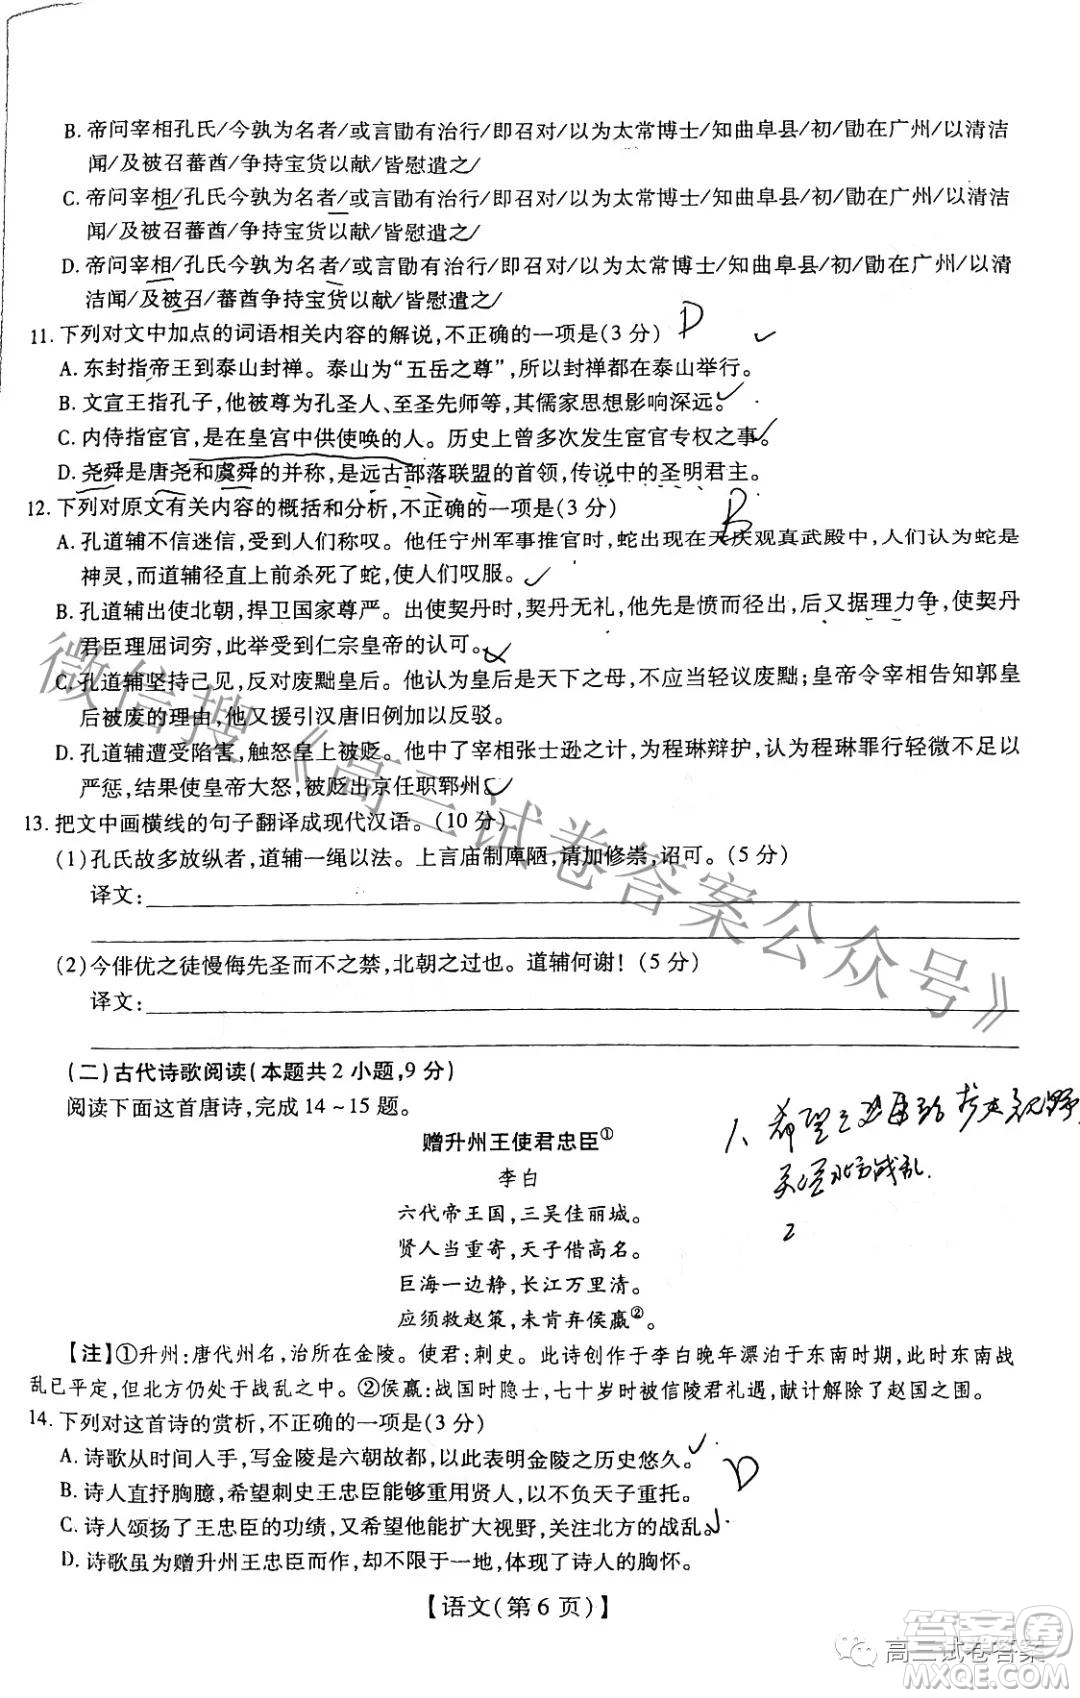 B. 帝问宰相孔氏/今孰为名者/或言勖有治行/即召对/以为太常博士/知曲阜县/初/勖在广州/以清洁
闻/及被召蕃酋/争持宝货以献/皆慰遣之/
C. 帝问宰相/孔氏今孰为名者/或言勖有治行/即召对/以为太常博士/知曲阜县/初/勖在广州/以清洁
闻/及被召蕃酋/争持宝货以献/皆慰遣之/
D. 帝问宰相/孔氏今孰为名者/或言勖有治行/即召对/以为太常博士/知曲阜县/初/勖在广州/以清
洁闻/及被召/蕃酋争持宝货以献/皆慰遣之/
11. 下列对文中加点的词语相关内容的解说,不正确的一项是(3 分) D
A. 东封指帝王到泰山封禅。泰山为“五岳之尊”,所以封禅都在泰山举行。
B. 文宣王指孔子,他被尊为孔圣人、至圣先师等,其儒家思想影响深远。
C. 内侍指宦官,是在皇宫中供使唤的人。历史上曾多次发生宦官专权之事。
D. 尧舜是唐尧和虞舜的并称,是远古部落联盟的首领,传说中的圣明君主。
12. 下列对原文有关内容的概括和分析,不正确的一项是(3 分) B
A. 孔道辅不信迷信,受到人们称叹。他任宁州军事推官时,蛇出现在天庆观真武殿中,人们认为蛇是
神灵,而道辅径直上前杀死了蛇,使人们叹服。
B. 孔道辅出使北朝,捍卫国家尊严。出使契丹时,契丹无礼,他先是愤而径出,后又据理力争,使契丹
君臣理屈词穷,此举受到仁宗皇帝的认可。
C. 孔道辅坚持己见,反对废黜皇后。他认为皇后是天下之母,不应当轻议废黜;皇帝令宰相告知郭皇
后被废的理由,他又援引汉唐旧例加以反驳。
D. 孔道辅遭受陷害,触怒皇上被贬。他中了宰相张士逊之计,为程琳辩护,认为程琳罪行轻微不足以
严惩,结果使皇帝大怒,被贬出京任职郓州。
13. 把文中画横线的句子翻译成现代汉语。(10 分)
(1)孔氏故多放纵者,道辅一绳以法。上言庙制庳陋,请加修崇,诏可。(5 分)
译文:
(2)今俳优之徒慢侮先圣而不之禁,北朝之过也。道辅何谢!(5 分)
译文:
(二)古代诗歌阅读(本题共 2 小题,9 分)
阅读下面这首唐诗,完成 14~15 题。
赠升州王使君忠臣①
李白
六代帝王国,三吴佳丽城。
贤人当重寄,天子借高名。
巨海一边静,长江万里清。
应须救赵策,未肯弃侯嬴②。
【注】①升州:唐代州名,治所在金陵。使君:刺史。此诗创作于李白晚年漂泊于东南时期,此时东南战
乱已平定,但北方仍处于战乱之中。②侯嬴:战国时隐士,七十岁时被信陵君礼遇,献计解除了赵国之围。
14. 下列对这首诗的赏析,不正确的一项是(3 分)
A. 诗歌从时间入手,写金陵是六朝故都,以此表明金陵之历史悠久。
B. 诗人直抒胸臆,希望刺史王忠臣能够重用贤人,以不负天子重托。 D
C. 诗人颂扬了王忠臣的功绩,又希望他能扩大视野,关注北方的战乱。
D. 诗歌虽为赠升州王忠臣而作,却不局限于一地,体现了诗人的胸怀。
【语文(第 6 页)】
微信搜《高三试卷答案公众号》
高三试卷答案
答案圈
MXQE.COM